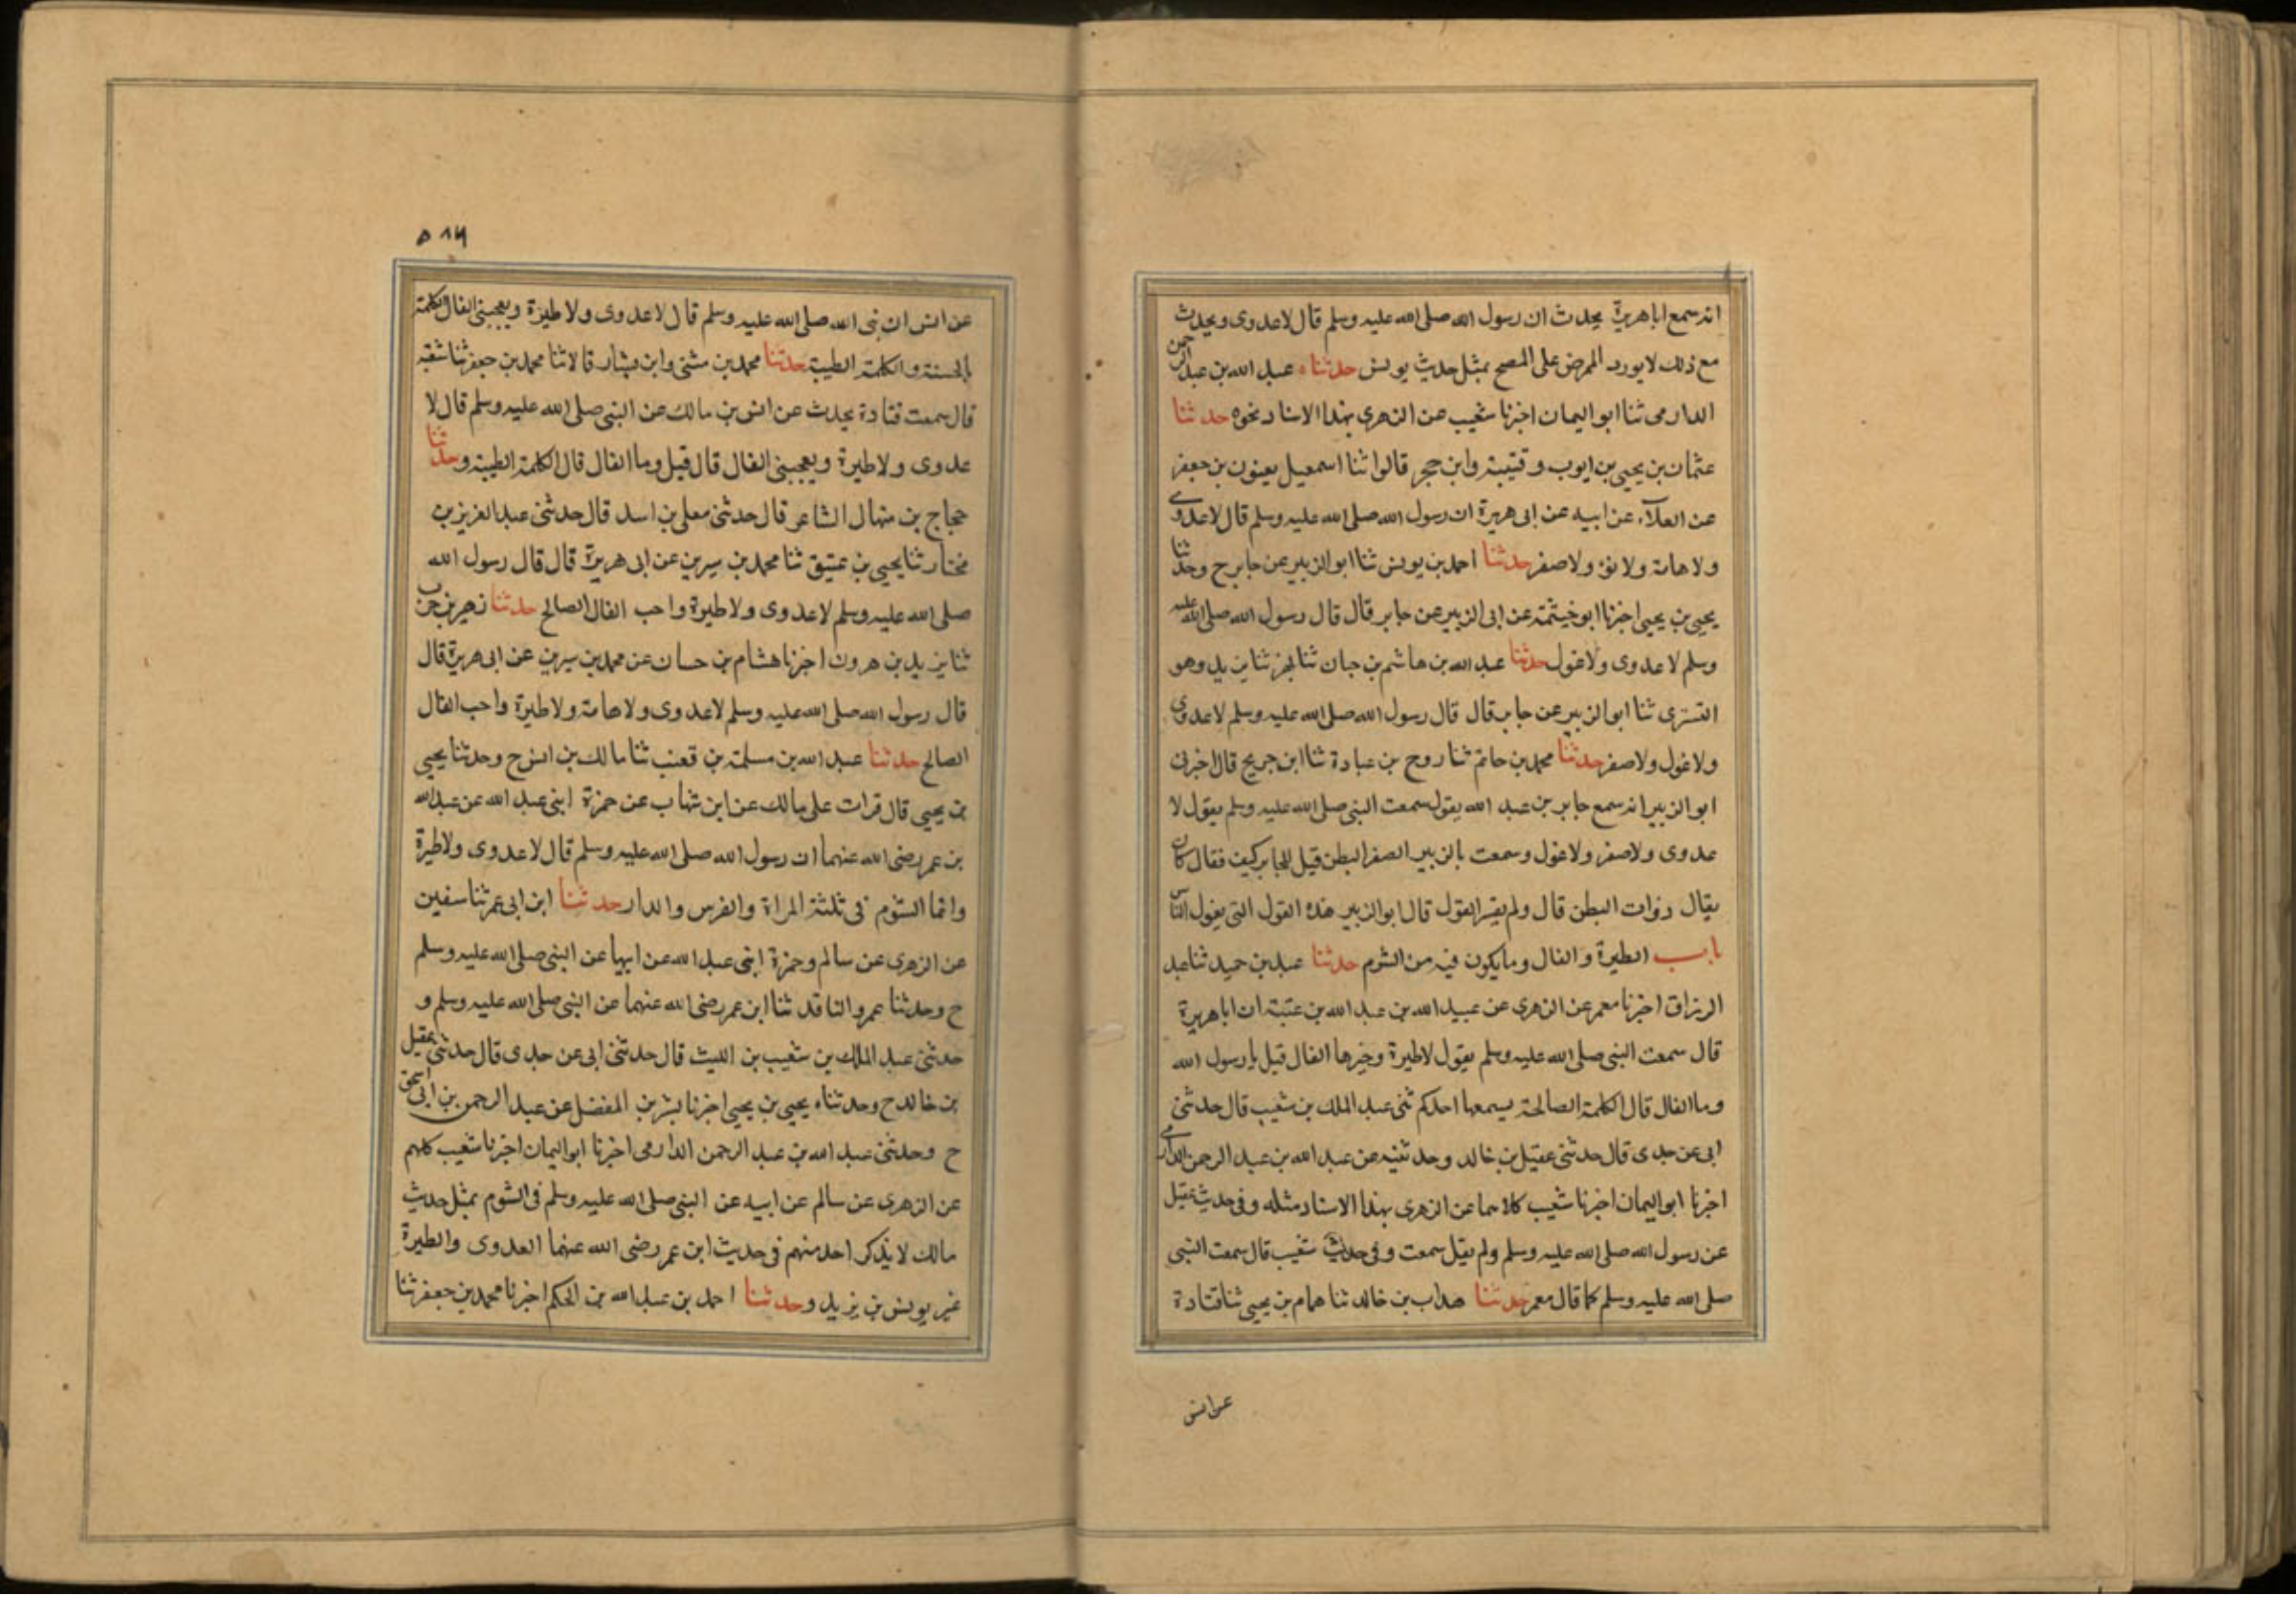 انه سمع ابا هريرة يحدث ان رسول الله صلى الله عليه وسلم قال لا عدوى ويحدث
مع ذلك لا يورد الممرض على المصح بمثل حديث يونس حدثناه عبد الله بن عبد الرحمن
الدارمى ثنا ابو اليمان اخبرنا شعيب عن الزهرى بهذا الاسناد نحوه حدثنا
عثمان بن يحيى بن ايوب وقتيبة وابن حجر قالوا ثنا اسمعيل يعنون بن جعفر
عن العلآء عن ابيه عن ابى هريرة ان رسول الله صلى الله عليه وسلم قال لا عدوى
ولا هامة ولا نوء ولا صفر حدثنا احمد بن يونس ثنا ابو الزبير عن جابر ح وحدثنا
يحيى بن يحيى اخبرنا ابو خيثمة عن ابى الزبير عن جابر قال قال رسول الله صلى الله عليه
وسلم لا عدوى ولا غول حدثنا عبد الله بن هاشم بن حبان ثنا بهز ثنا يزيد وهو
التسترى ثنا ابو الزبير عن جابر قال قال رسول الله صلى الله عليه وسلم لا عدوى
ولا غول ولا صفر حدثنا محمد بن حاتم ثنا روح بن عبادة ثنا ابن جريج قال اخبرنى
ابو الزبير انه سمع جابر بن عبد الله يقول سمعت النبى صلى الله عليه وسلم يقول لا
عدوى ولا صفر ولا غول وسمعت بالزبير الصفر البطن قيل لجابر كيف فقال كان
يقال دوات البطن قال ولم يفسر الغول قال ابو الزبير هذه الغول التى يغول الناس
باب الطيرة والفال وما يكون فيه من الشوم حدثنا عبد بن حميد ثنا عبد
الرزاق اخبرنا معمر عن الزهرى عن عبيد الله بن عبد الله بن عتبة ان ابا هريرة
قال سمعت النبى صلى الله عليه وسلم يقول لا طيرة وخيرها الفال قيل يا رسول الله
وما الفال قال الكلمة الصالحة يسمعها احدكم ثنى عبد الملك بن شعيب قال حدثنى
ابى عن جدى قال حدثنى عقيل بن خالد وحدثنيه عن عبد الله بن عبد الرحمن الدارمى
اخبرنا ابو اليمان اخبرنا شعيب كلاهما عن الزهرى بهذا الاسناد مثله وفى حديث عقيل
عن رسول الله صلى الله عليه وسلم ولم يقل سمعت وفى حديث شعيب قال سمعت النبى
صلى الله عليه وسلم كما قال معمر حدثنا هداب بن خالد ثنا همام بن يحيى ثنا قتادة
عن انس
٥١٧
عن انس ان نبى الله صلى الله عليه وسلم قال لا عدوى ولا طيرة ويعجبنى الفال الكلمة
الحسنة والكلمة الطيبة حدثنا محمد بن مثنى وابن بشار قالا ثنا محمد بن جعفر ثنا شعبة
قال سمعت قتادة يحدث عن انس بن مالك عن النبى صلى الله عليه وسلم قال لا
عدوى ولا طيرة ويعجبنى الفال قال قيل وما الفال قال الكلمة الطيبة وحدثنا
حجاج بن منهال الشاعر قال حدثنى معلى بن اسد قال حدثنى عبد العزيز بن
مختار ثنا يحيى بن عتيق ثنا محمد بن سيرين عن ابى هريرة قال قال رسول الله
صلى الله عليه وسلم لا عدوى ولا طيرة واحب الفال الصالح حدثنا زهير بن حرب
ثنا يزيد بن هرون اخبرنا هشام بن حسان عن محمد بن سيرين عن ابى هريرة قال
قال رسول الله صلى الله عليه وسلم لا عدوى ولا هامة ولا طيرة واحب الفال
الصالح حدثنا عبد الله بن مسلمة بن قعنب ثنا مالك بن انس ح وحدثنا يحيى
بن يحيى قال قرات على مالك عن ابن شهاب عن حمزة ابنى عبد الله عن عبد الله
بن عمر رضى الله عنهما ان رسول الله صلى الله عليه وسلم قال لا عدوى ولا طيرة
وانما الشوم فى ثلثة المراة والفرس والدار حدثنا ابن ابى عمر ثنا سفين
عن الزهرى عن سالم وحمزة ابنى عبد الله عن ابيها عن النبى صلى الله عليه وسلم
ح وحدثنا عمرو الناقد ثنا ابن عمر رضى الله عنهما عن النبى صلى الله عليه وسلم و
حدثنى عبد الملك بن شعيب بن الليث قال حدثنى ابى عن جدى قال حدثنى عقيل
بن خالد ح وحدثناه يحيى بن يحيى اخبرنا بشر بن المفضل عن عبد الرحمن بن ابى اسحق
ح وحدثنى عبد الله بن عبد الرحمن الدارمى اخبرنا ابو اليمان اخبرنا شعيب كلهم
عن الزهرى عن سالم عن ابيه عن النبى صلى الله عليه وسلم فى الشوم بمثل حديث
مالك لا يذكر احد منهم فى حديث ابن عمر رضى الله عنهما العدوى والطيرة
غير يونس بن يزيد وحدثنا احمد بن عبد الله بن الحكم اخبرنا محمد بن جعفر ثنا